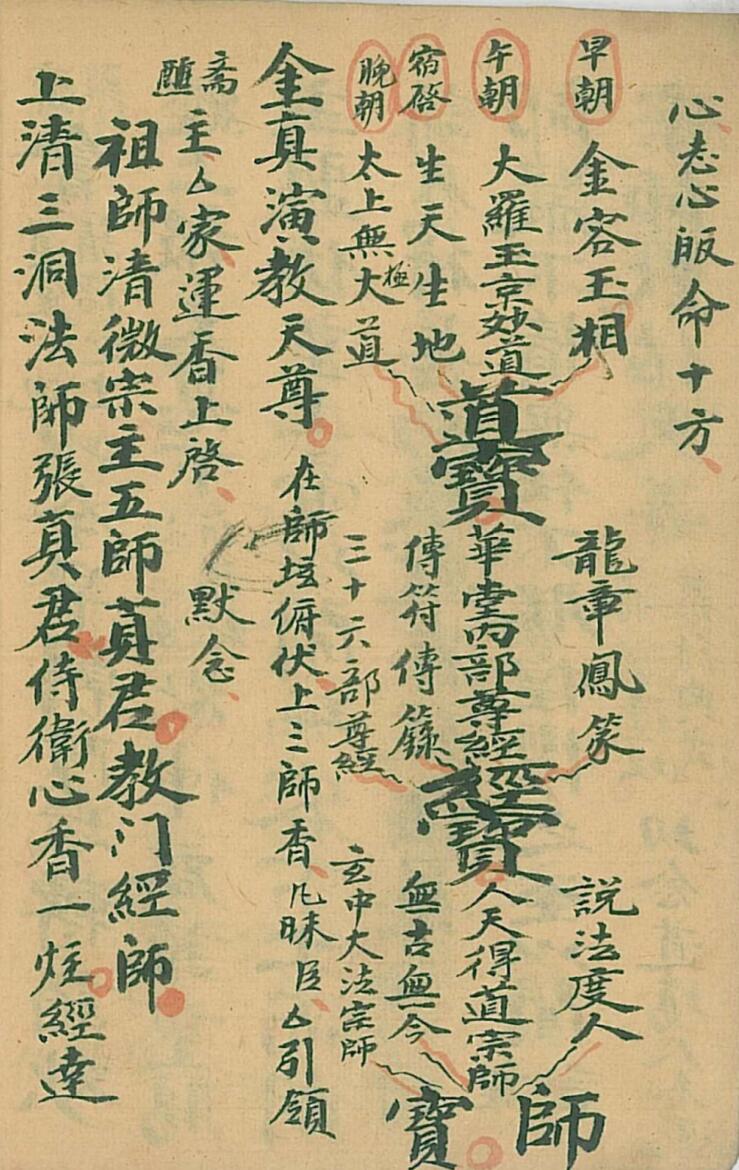 心志心皈命十方
早朝 金容玉相 龍章鳳篆 説法度人
午朝 大羅玉京妙道 道寶 華堂内部尊經 經寶 人天得道宗師 師寶
宿啓 生天生地 傳符傳籙 無古無今
晚朝 太上無極大道 三十六部尊經 玄中大法宗師
金真演教天尊 在師壇俯伏上三師香凡昧臣厶引領
斋醮主厶家運香上啓 默念
祖師清微宗主五師真君教门經師
上清三洞法師張真君侍衛心香一炷經達